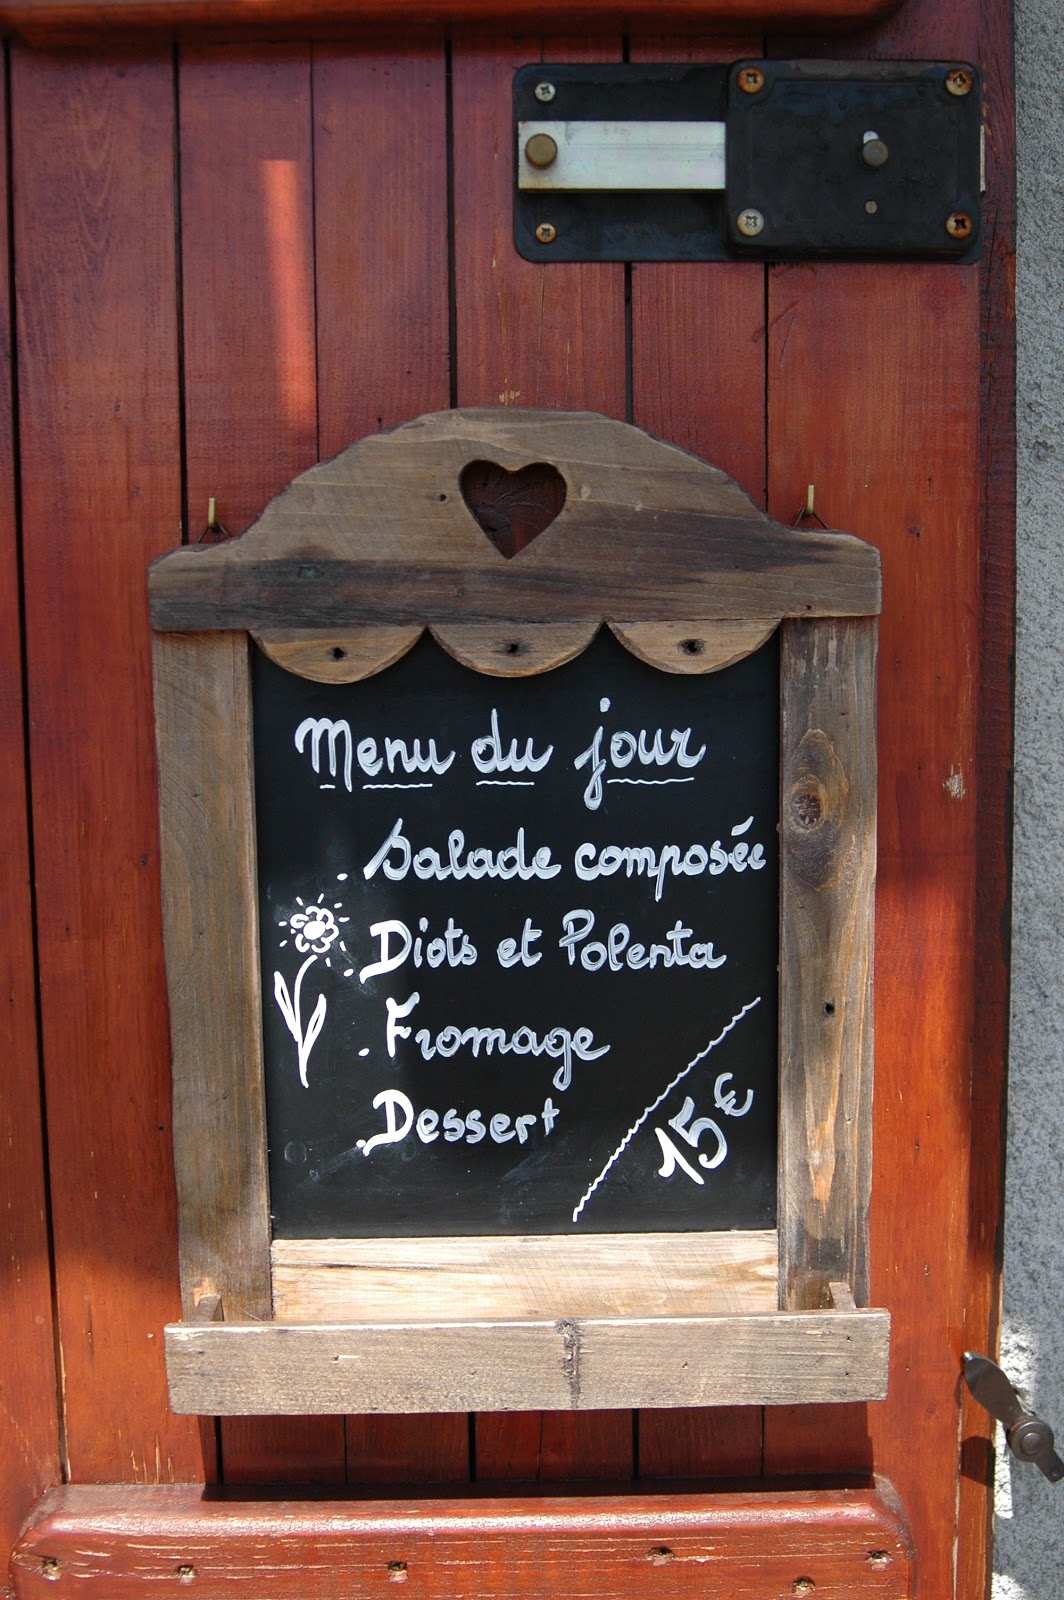 Menu du jour
. Salade composée
. Diots et Polenta
. Fromage
. Dessert
15€